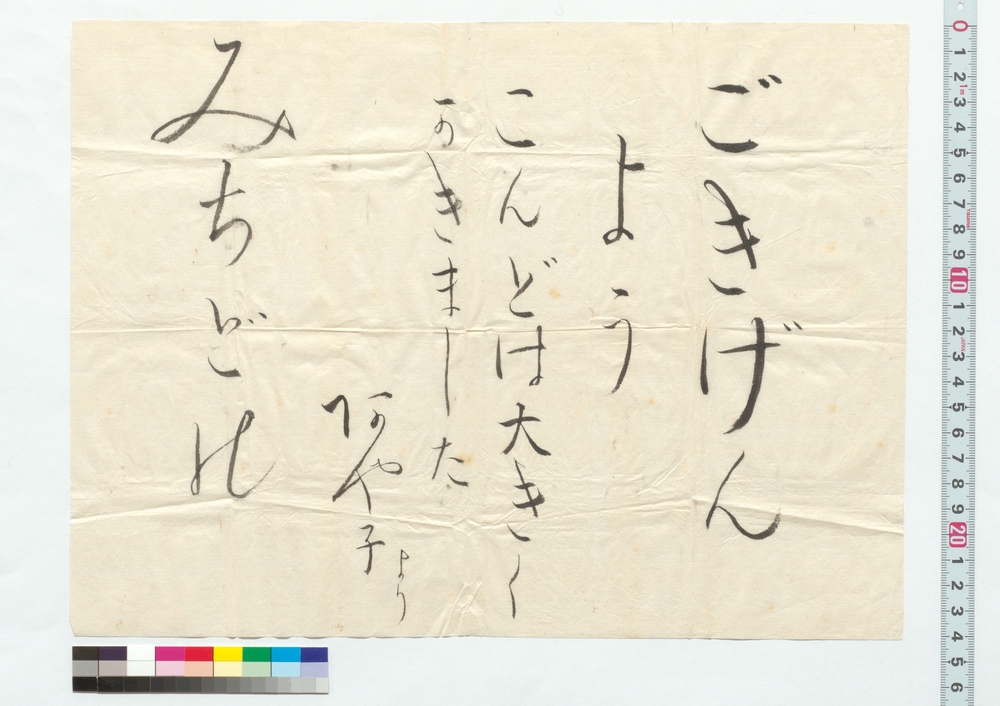 ごきげん
よう
こんどは大きく
かきました
阿や子より
みちどの
0 1 2 3 4 5 6 7 8 9 10 1 2 3 4 5 6 7 8 9 20 1 2 3 4 5 6